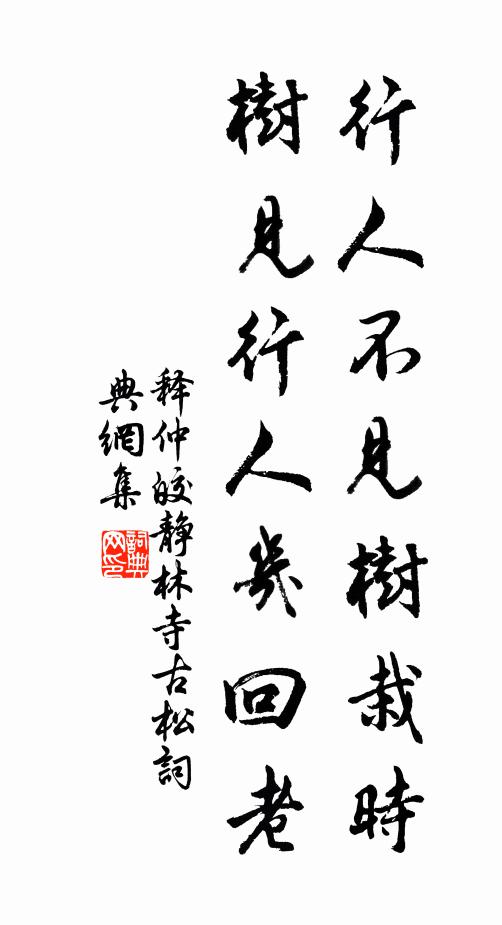 行人不見樹栽時
樹見行人幾回老
释仲皎静林寺古松詞
典網集
詞典
网印